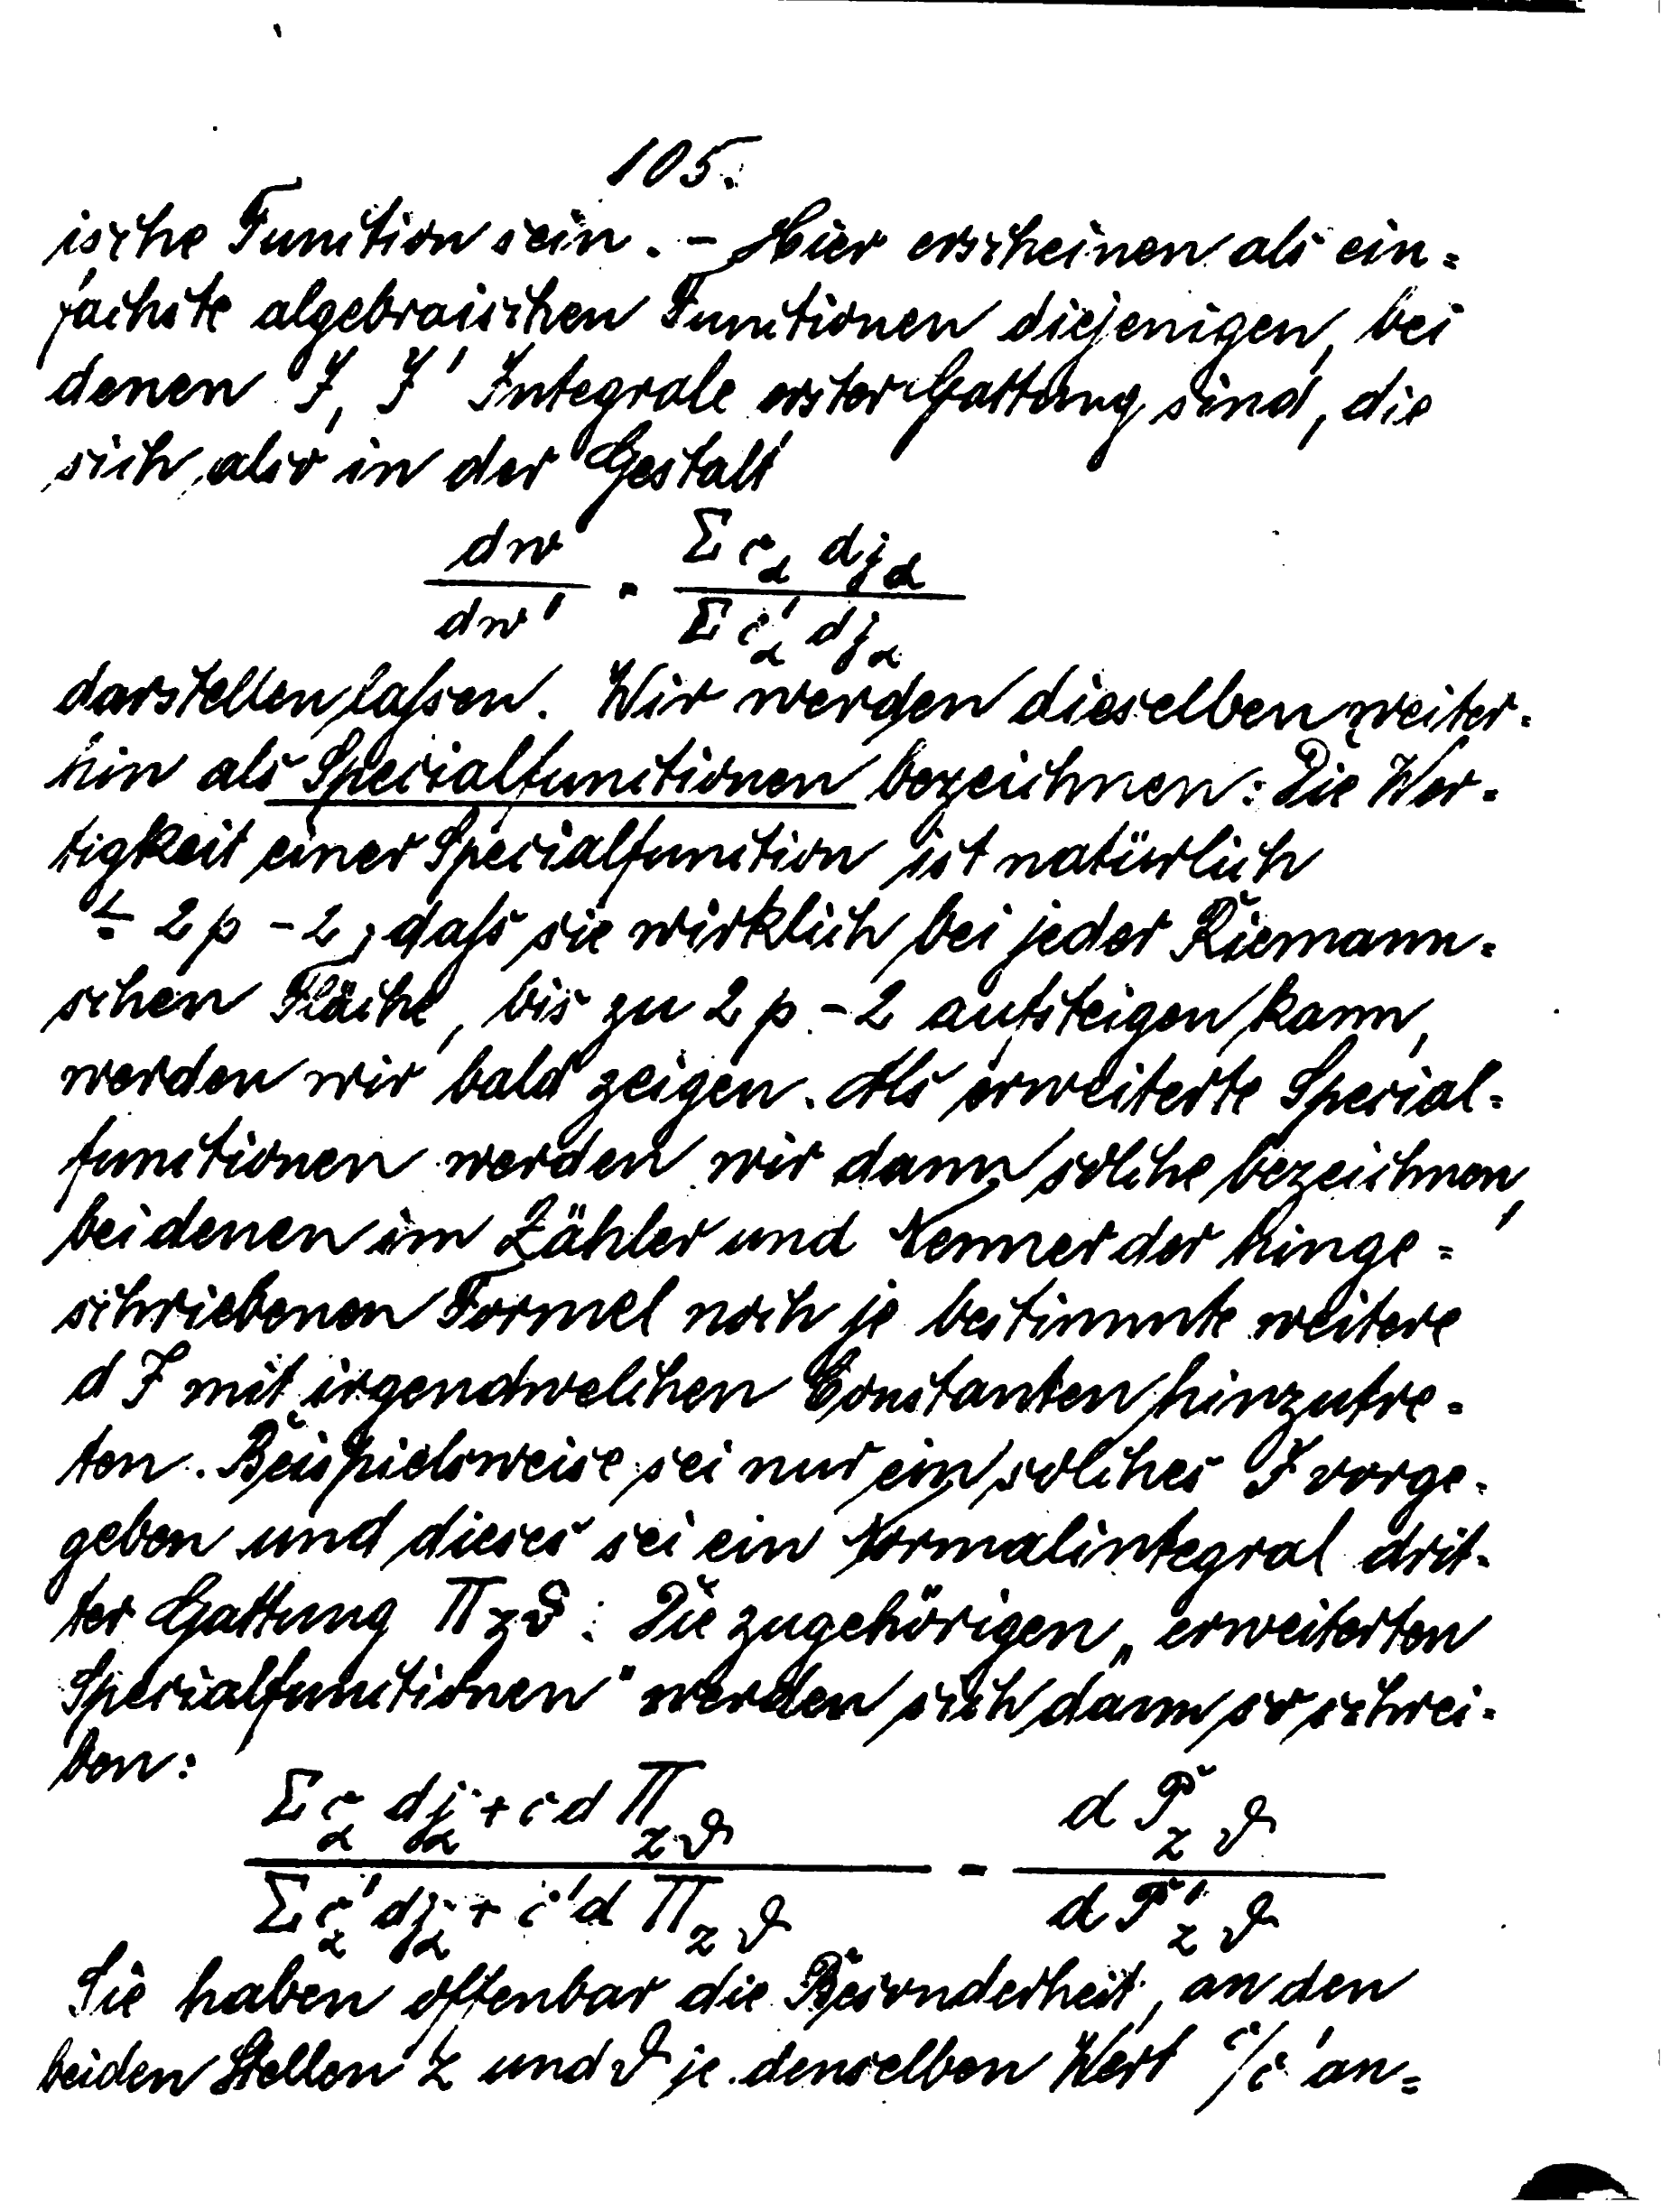 105.
ische Function sein. – Hier erscheinen als ein=
fachste algebraischen Functionen diejenigen, bei
denen J, J' Integrale erster Gattung sind, die
sich also in der Gestalt
dw/dw' = Σ c_α dj_α / Σ c'_α dj_α
darstellen laßen. Wir werden dieselben weiter=
hin als Specialfunctionen bezeichnen: Die Wer=
tigkeit einer Specialfunction ist natürlich
≦ 2p – 2; daß sie wirklich bei jeder Riemann=
schen Fläche, bis zu 2p – 2 aufsteigen kann,
werden wir bald zeigen. Als erweiterte Special=
functionen werden wir dann solche bezeichnen,
bei denen im Zähler und Nenner der hinge=
schriebenen Formel noch je bestimmte weitere
dJ mit irgendwelchen Constanten hinzutre=
ten. Beispielsweise sei nur ein solches J vorge=
geben und dieses sei ein Normalintegral drit=
ter Gattung Π_zϑ: Die zugehörigen „erweiterten
Specialfunctionen" werden sich dann so schrei=
ben:
Σ c_α dj_α + c d Π_zϑ / Σ c'_α dj_α + c' d Π_zϑ = d P_zϑ / d P'_zϑ
Sie haben offenbar die Besonderheit, an den
beiden Stellen z und ϑ je denselben Wert c/c' an=